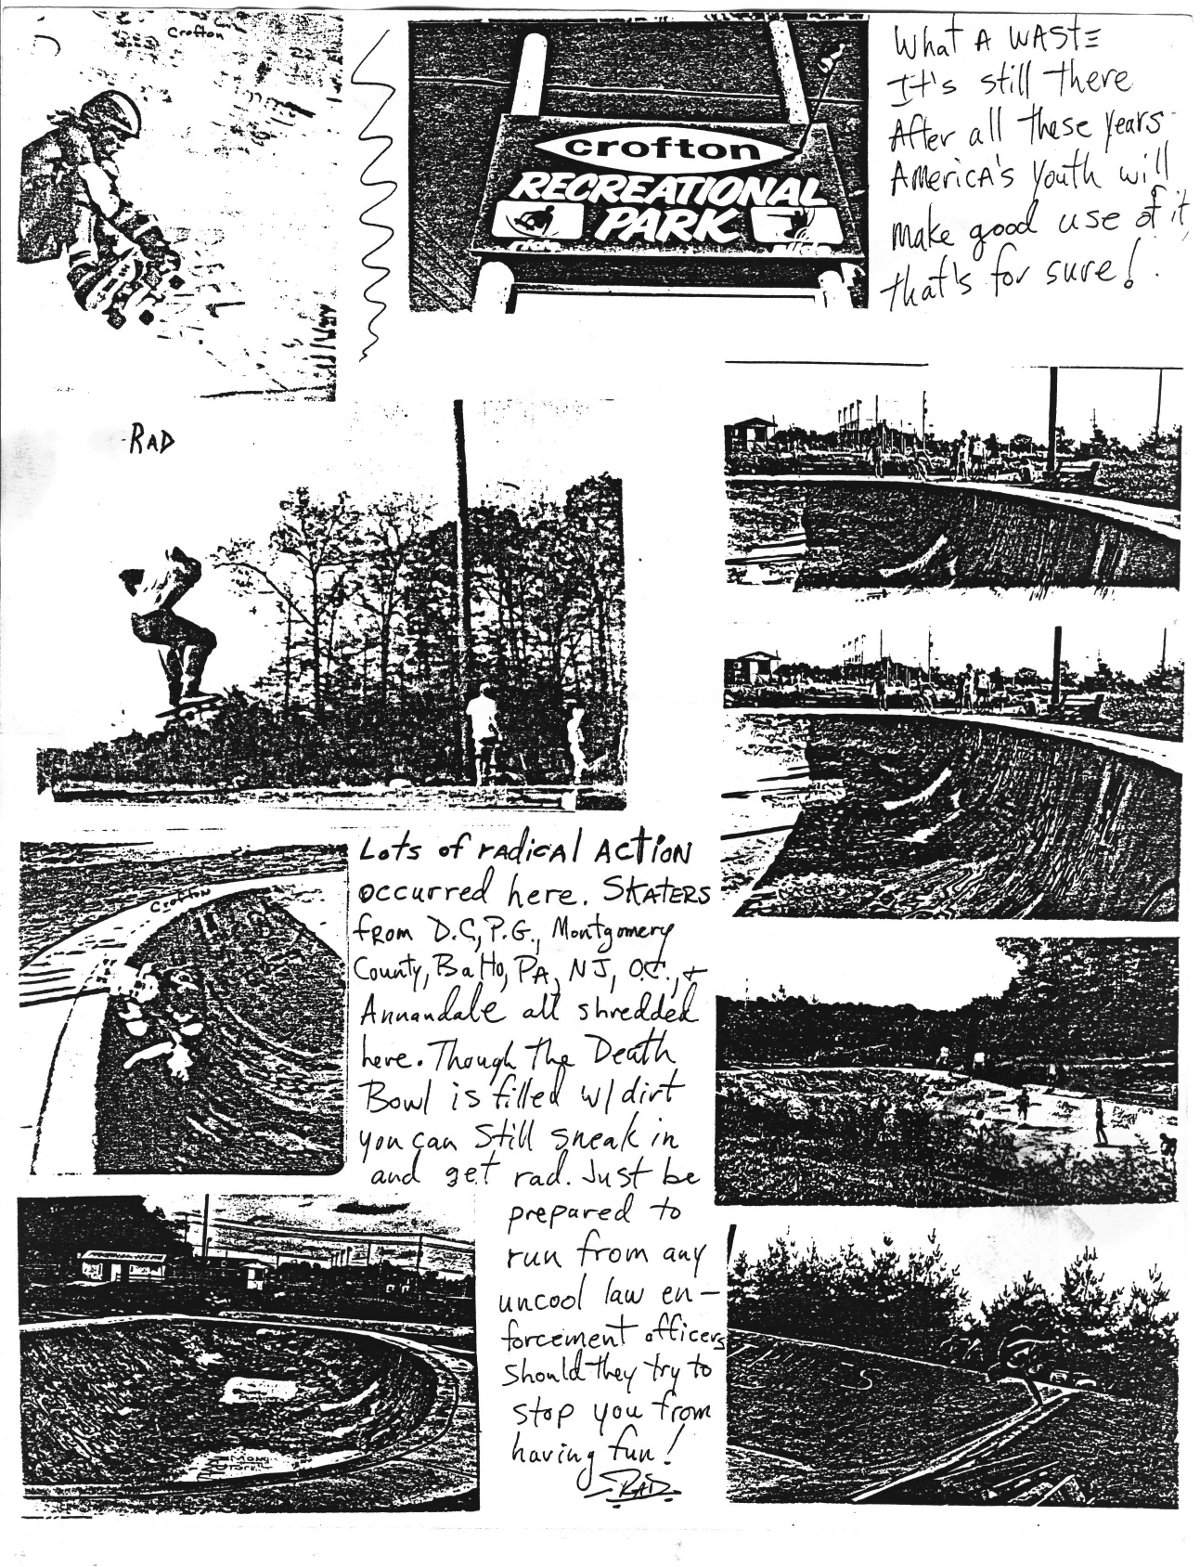 Crofton
crofton
RECREATIONAL
PARK
ride
What A WASTE
It's still there
After all these years
America's Youth will
make good use of it,
that's for sure!
RAD
Crofton
Lots of radical ACtiON
occurred here. SKATERS
from D.C, P.G., Montgomery
County, BaHo, PA, NJ, O.C., +
Annandale all shredded
here. Though the Death
Bowl is filled w/ dirt
you can still sneak in
and get rad. Just be
prepared to
run from any
uncool law en-
forcement officers
should they try to
stop you from
having fun!
RAD